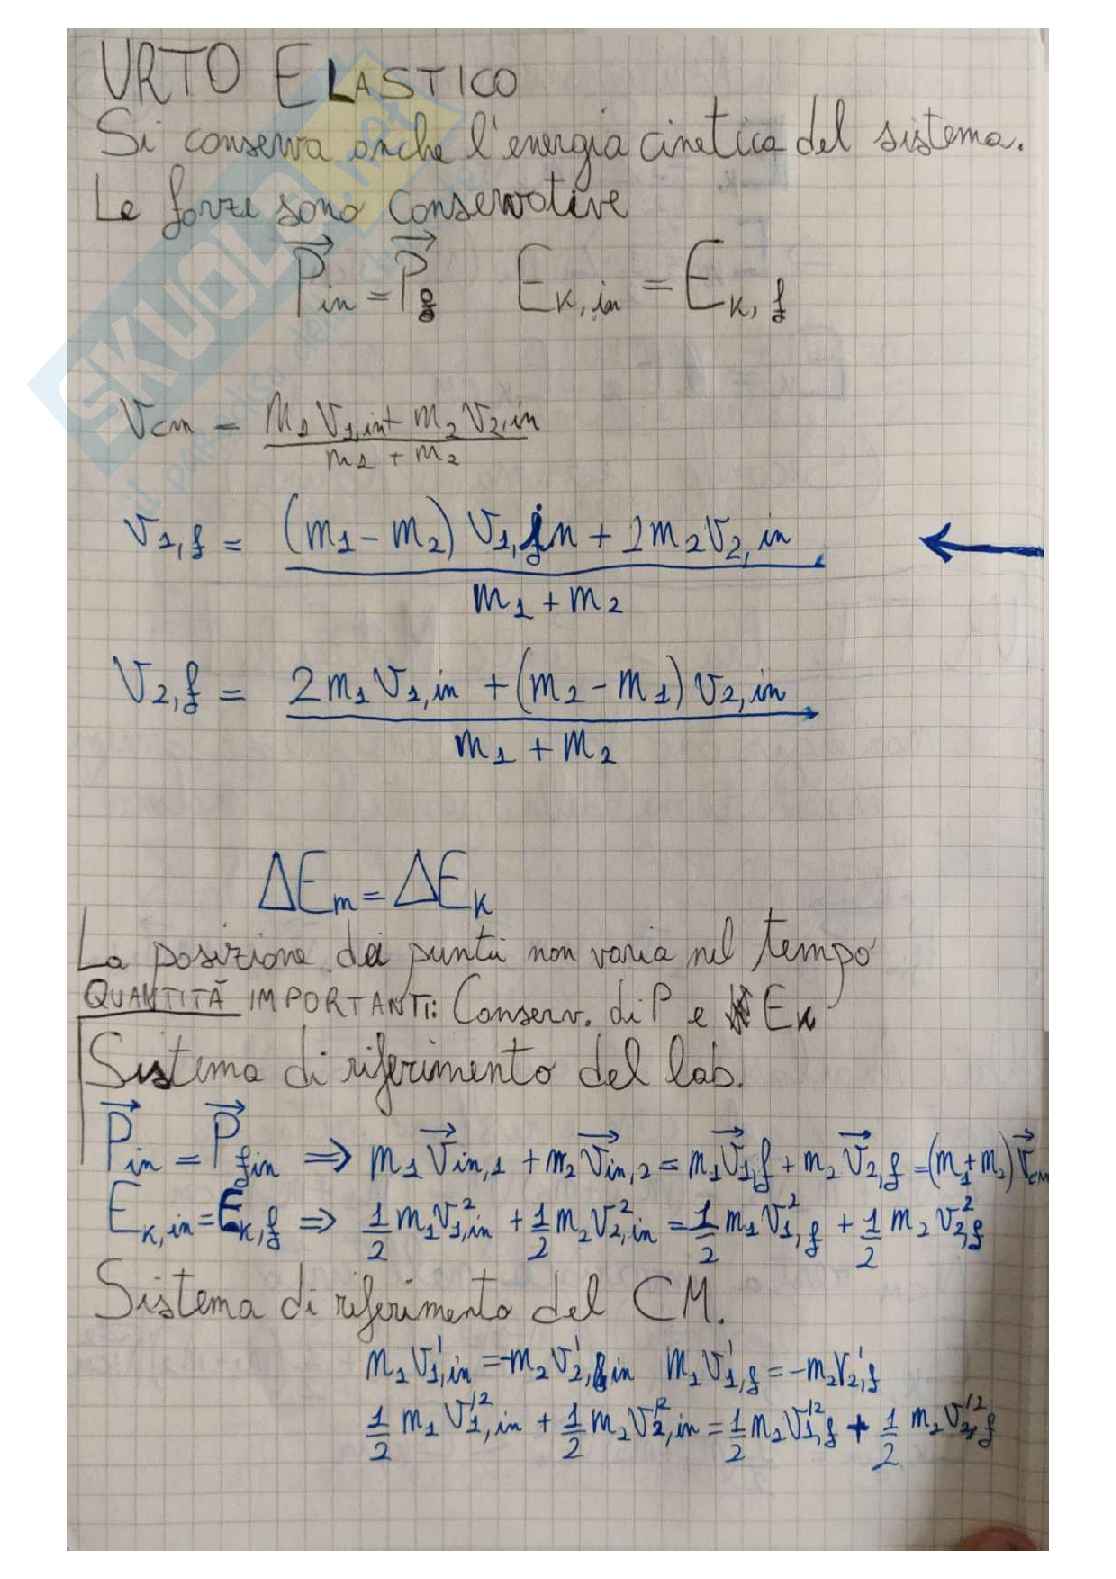 URTO ELASTICO
Si conserva anche l'energia cinetica del sistema.
Le forze sono conservative
P⃗in = P⃗f   Ek,in = Ek,f
Vcm = m1 V1,in + m2 V2,in / m1 + m2
V1,f = (m1 - m2) V1,in + 2 m2 V2,in / m1 + m2
V2,f = 2 m1 V1,in + (m2 - m1) V2,in / m1 + m2
ΔEm = ΔEk
La posizione dei punti non varia nel tempo
QUANTITÀ IMPORTANTI: Conserv. di P e Ek
Sistema di riferimento del lab.
P⃗in = P⃗fin ⇒ m1 V⃗in,1 + m2 V⃗in,2 = m1 V⃗1,f + m2 V⃗2,f = (m1 + m2) V⃗cm
Ek,in = Ek,f ⇒ 1/2 m1 V1,in² + 1/2 m2 V2,in² = 1/2 m1 V1,f² + 1/2 m2 V2,f²
Sistema di riferimento del CM.
m1 V1',in = -m2 V2',in   m1 V1',f = -m2 V2',f
1/2 m1 V1,in'² + 1/2 m2 V2,in'² = 1/2 m2 V1,f'² + 1/2 m2 V2,f'²
SKUOLA.net